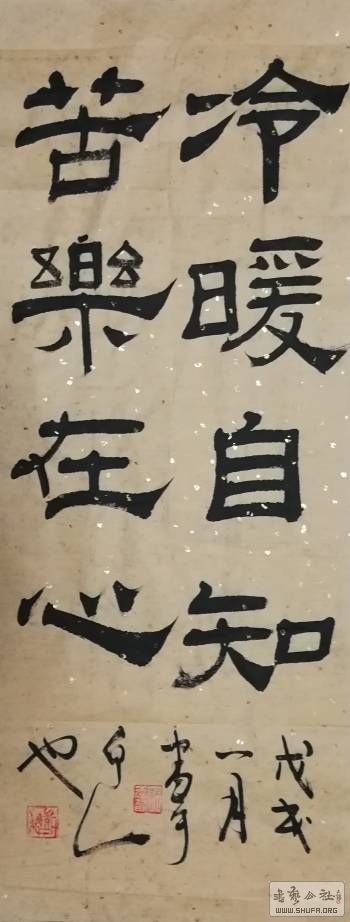 冷暖自知
苦樂在心
戊戌
一月
書于
也
書藝公社
WWW.SHUFA.ORG